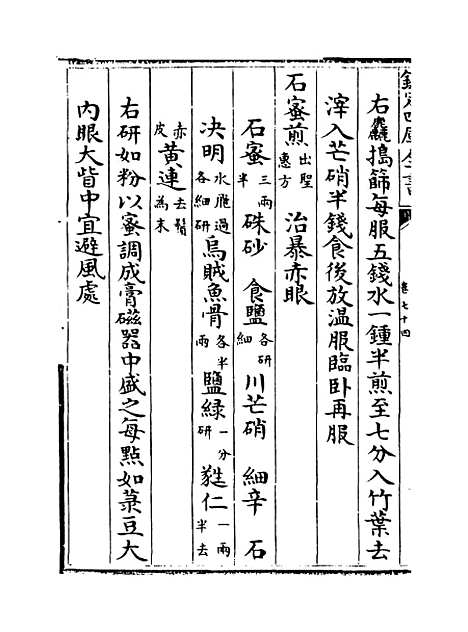 欽定四庫全書
卷七十四
右麤搗篩每服五錢水一鍾半煎至七分入竹葉去
滓入芒硝半錢食後放温服臨卧再服
石蜜煎出聖惠方 治暴赤眼
石蜜三兩半 硃砂 食鹽各研細 川芒硝 細辛 石
決明水飛過各細研 烏賊魚骨各半兩 鹽緑一分研 蕤仁一兩半去
赤皮 黄連去鬚為末
右研如粉以蜜調成膏磁器中盛之每點如菉豆大
内眼大眥中宜避風處